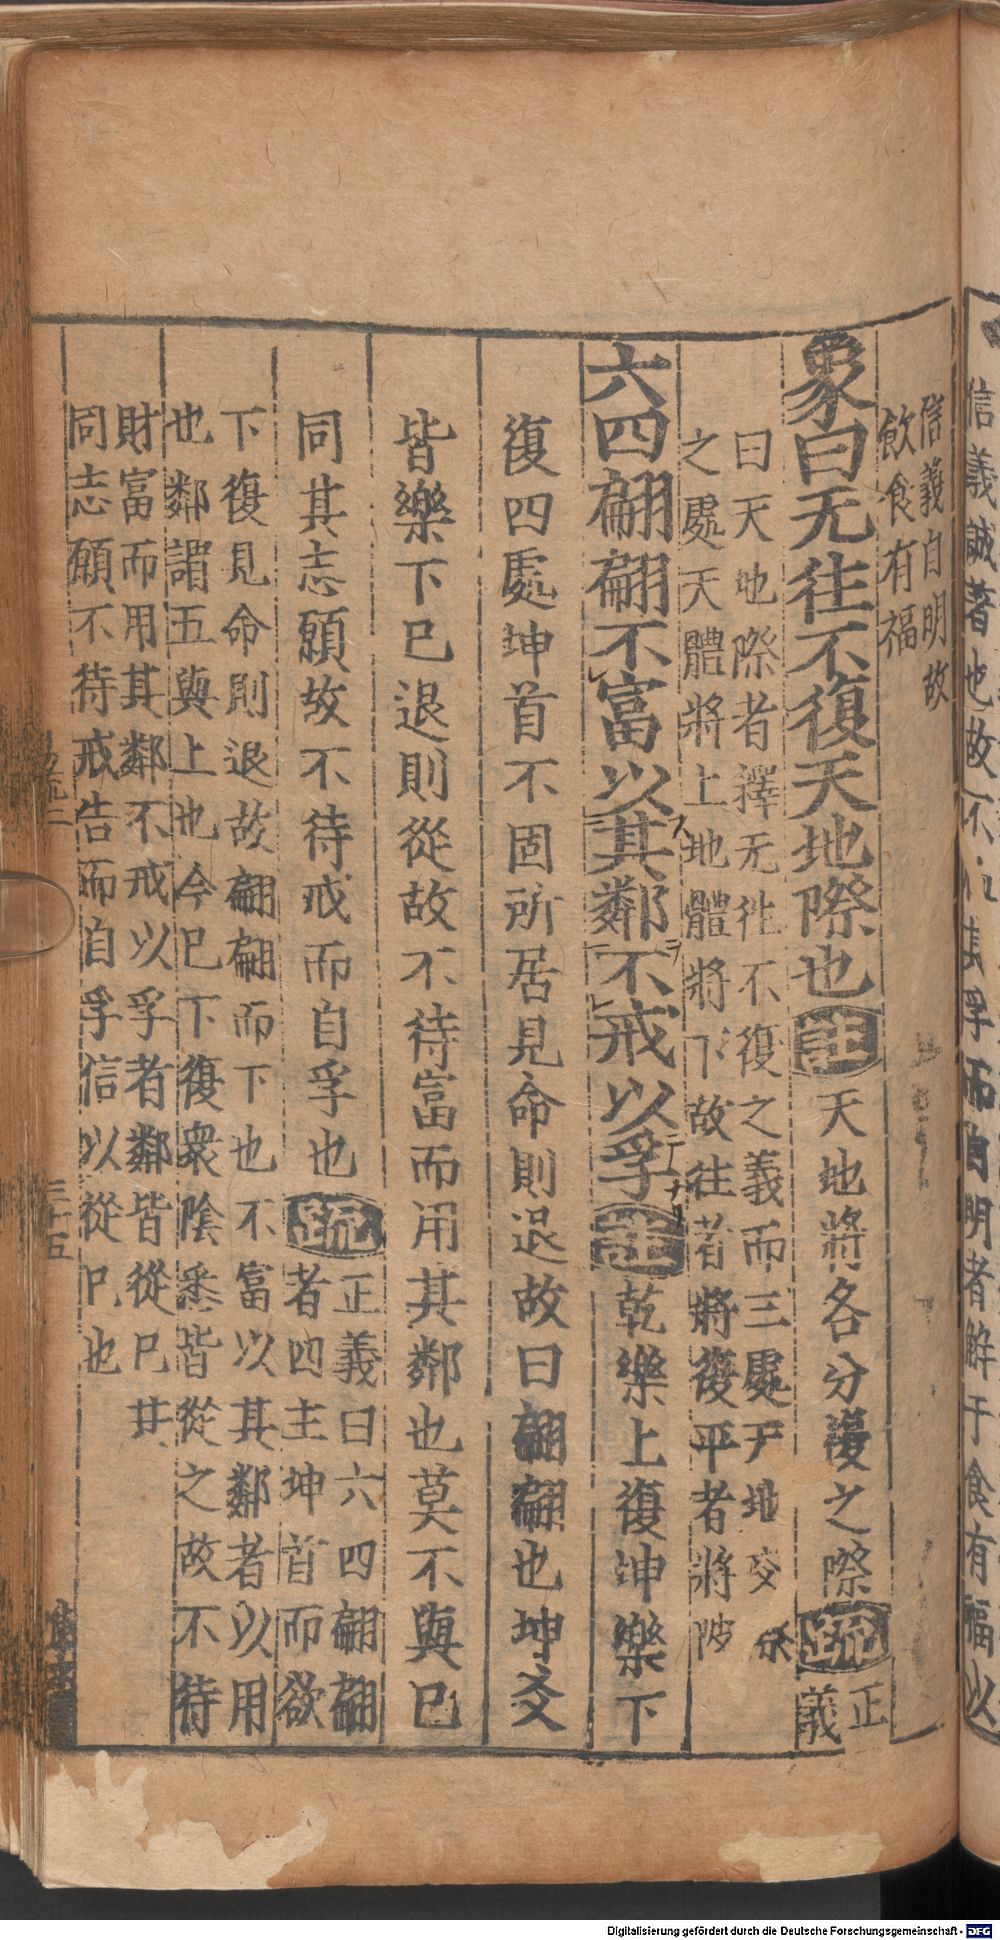 信義誠著也故不
集孚而自明者觧于食有福以
信義自明故
飲食有福
象曰无往不復天地際也註天地將各分復之際疏正
義
曰天地際者釋无徃不復之義而三處天地交
之處天體將上地體將下故往者將復平者將陂
六四翩翩不富以其鄰不戒以孚註乾樂上復坤樂下
復四處坤首不固所居見命則退故曰翩翩也坤爻
皆樂下已退則從故不待富而用其鄰也莫不與已
同其志願故不待戒而自孚也疏正義曰六四翩翩
者四主坤首而欲
下復見命則退故翩翩而下也不富以其鄰者以用
也鄰謂五與上也今已下復衆陰悉皆從之故不待
財富而用其鄰不戒以孚者鄰皆從已共
同志願不待戒告而自孚信以從已也
易疏二
三十五
Digitalisierung gefördert durch die Deutsche Forschungsgemeinschaft - DFG